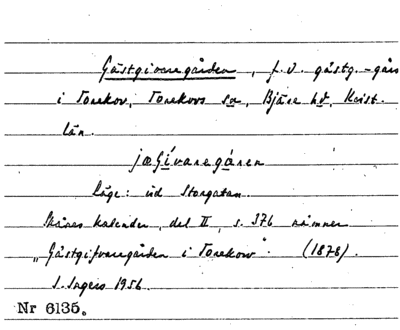 Gästgivaregården, f.d. gästg.-gård
i Torekov, Torekovs sn, Bjäre hd, Krist.
län.
jæGívaregáren
Läge: vid Storgatan.
Skånes kalender, del II, s. 376 nämner
"Gästgifvaregården i Torekow". (1878).
S. Ingers 1956.
Nr 6135.